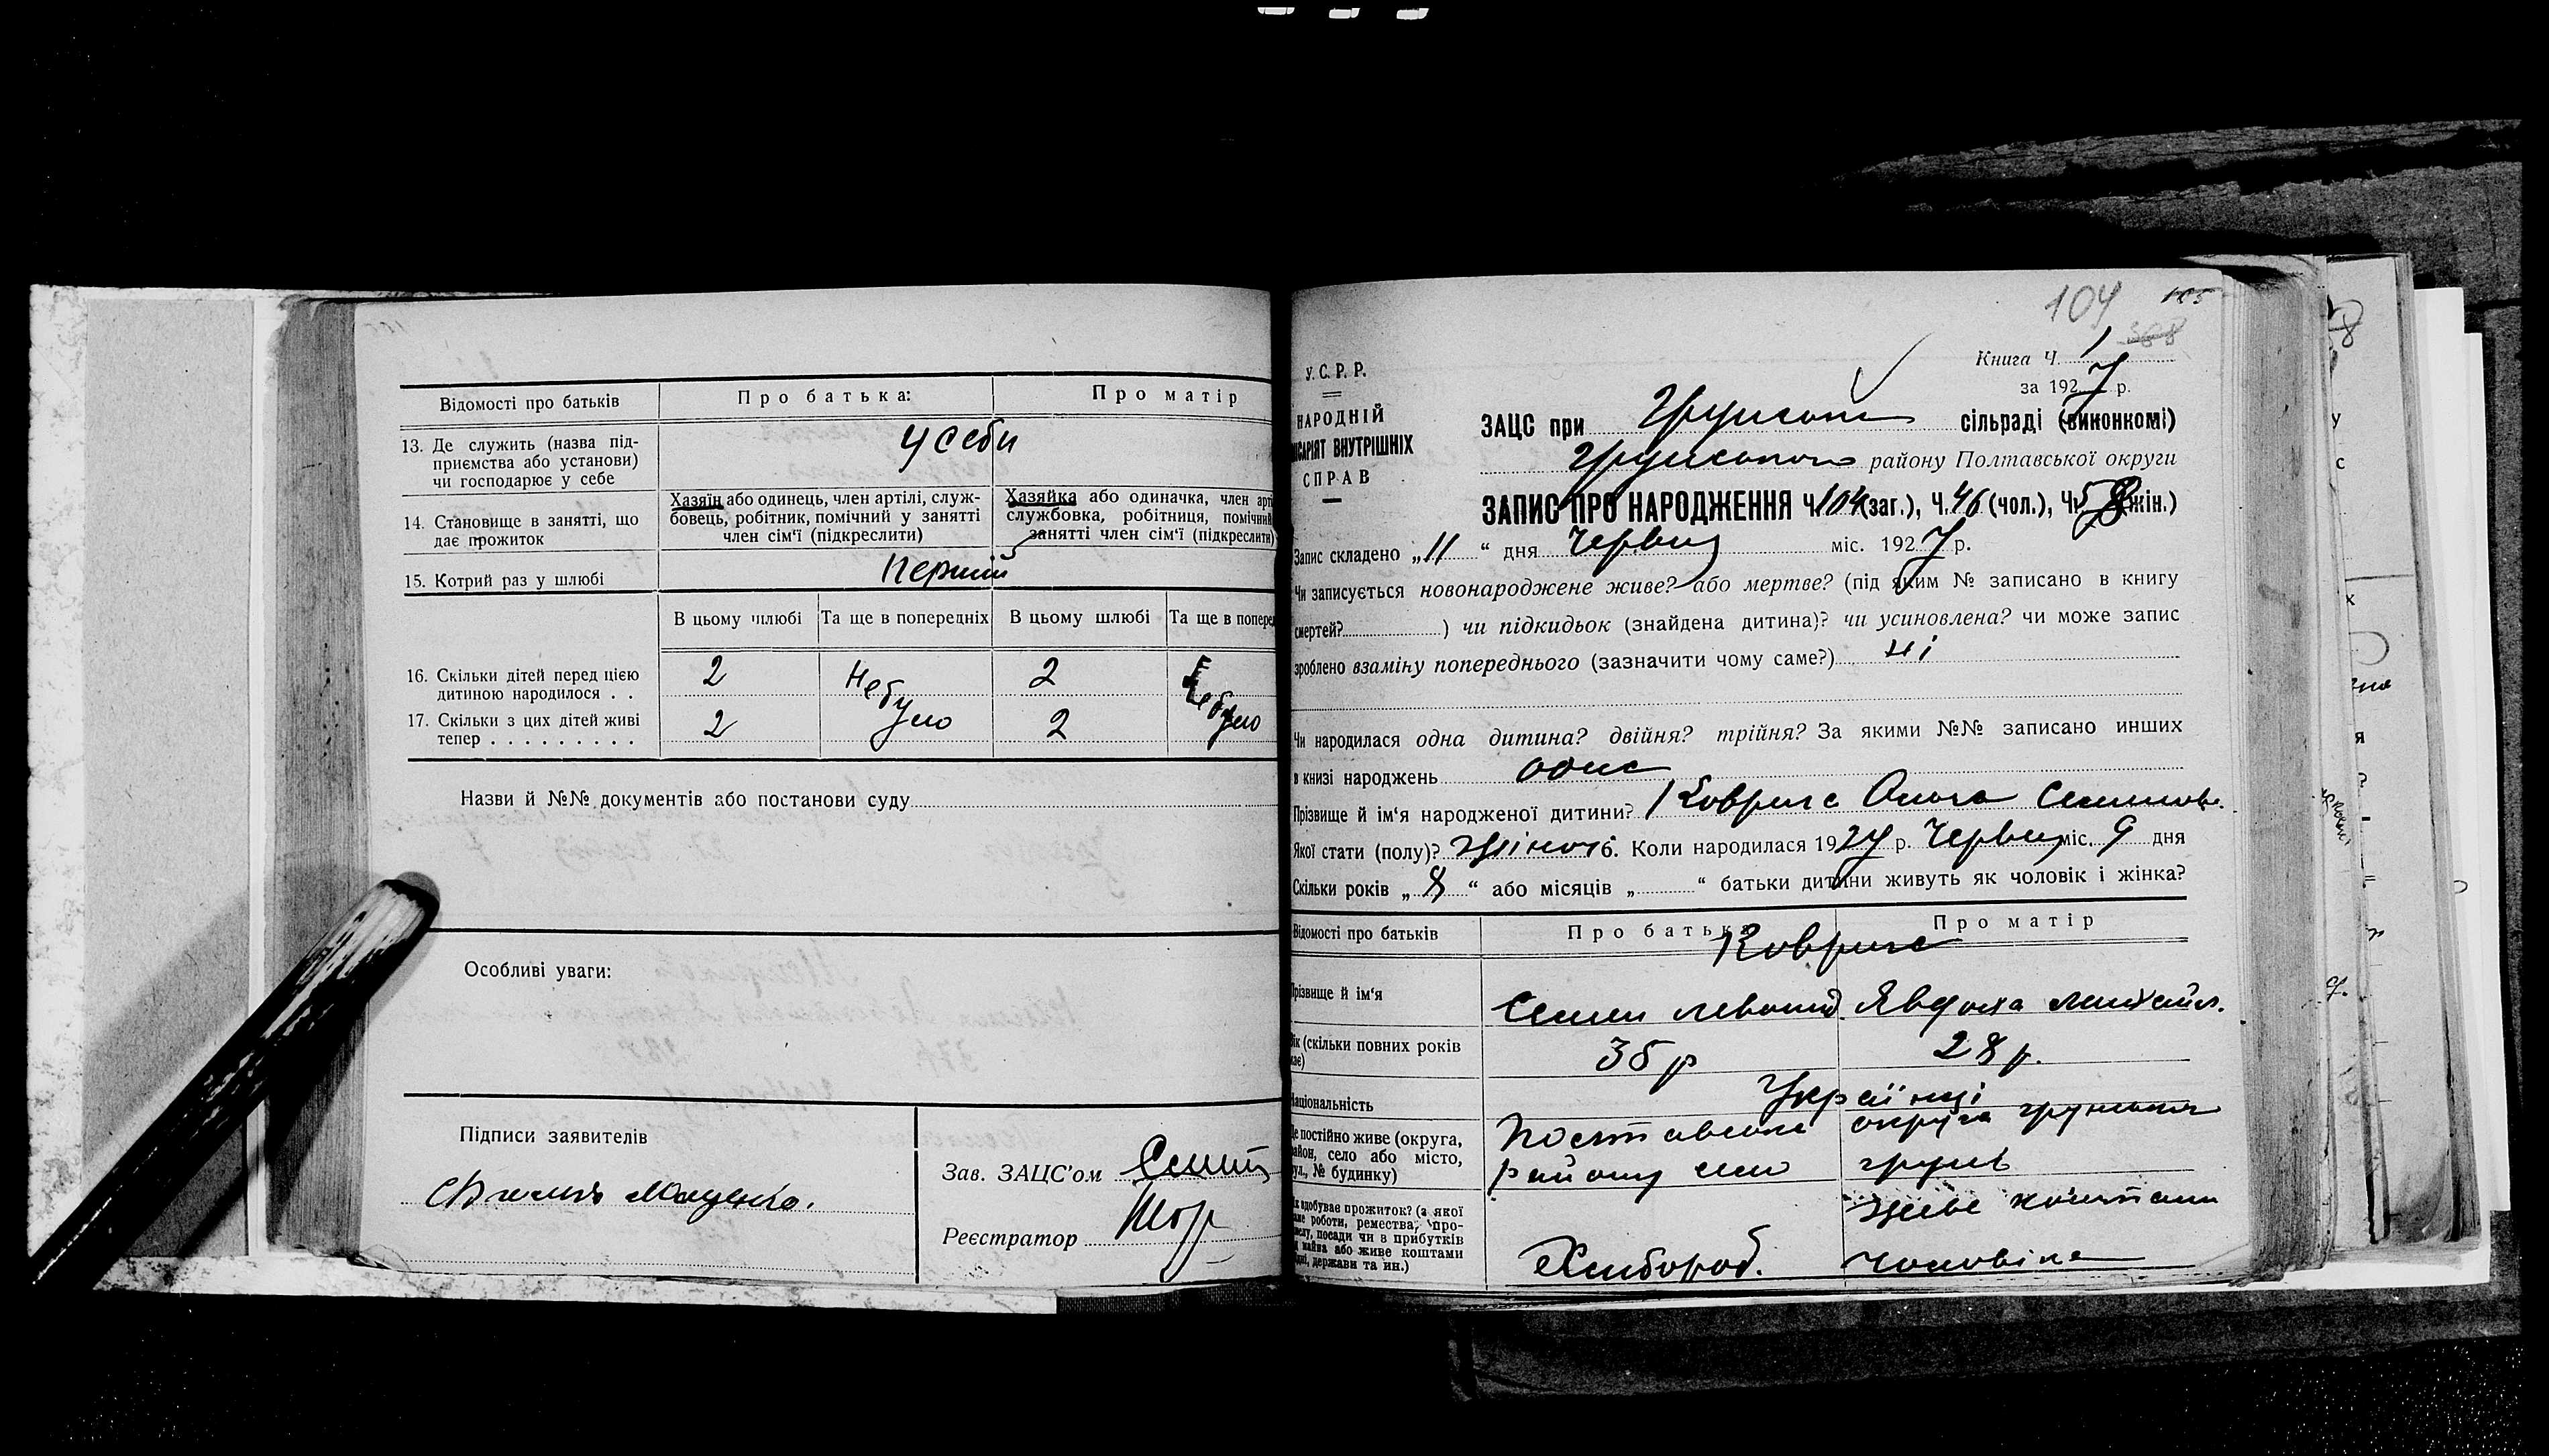 Відомості про батьків
Про батька:
Про матір
13. Де служить (назва під-
приємства або установи)
чи господарює у себе
у себи
14. Становище в занятті, що
дає прожиток
Хазяїн або одинець, член артілі, служ-
бовець, робітник, помічний у занятті
член сім'ї (підкреслити)
Хазяйка або одиначка, член арті
службовка, робітниця, помічний
занятті член сім'ї (підкреслити)
15. Котрий раз у шлюбі
Перший
В цьому шлюбі
Та ще в попередніх
В цьому шлюбі
Та ще в попере
16. Скільки дітей перед цією
дитиною народилося . .
2
Не було
2
Не було
17. Скільки з цих дітей живі
тепер . . . . . . . . .
2
2
Назви й №№ документів або постанови суду
Особливі уваги:
Підписи заявителів
Зав. ЗАЦС'ом
Реєстратор
104
105
388
Книга Ч. 1
за 1927 р.
У. С. Р. Р.
НАРОДНІЙ
ІСАРІЯТ ВНУТРІШНІХ
СПРАВ
ЗАЦС при сільраді (виконкомі)
району Полтавської округи
ЗАПИС ПРО НАРОДЖЕННЯ Ч. 104 (заг.), Ч. 46 (чол.), Ч. 58 (жін.)
Запис складено „11“ дня Червня міс. 1927 р.
Чи записується новонароджене живе? або мертве? (під яким № записано в книгу
смертей? ) чи підкидьок (знайдена дитина)? чи усиновлена? чи може запис
зроблено взаміну попереднього (зазначити чому саме?) ні
Чи народилася одна дитина? двійня? трійня? За якими №№ записано инших
в книзі народжень одна
Прізвище й ім'я народженої дитини? Коврига Ольга Семенов.
Якої стати (полу)? Жіноч б. Коли народилася 1927 р. Червня міс. 9 дня
Скільки років „8“ або місяців „ “ батьки дитини живуть як чоловік і жінка?
Відомості про батьків
Про батька
Про матір
Коврига
Прізвище й ім'я
Семен
Явдоха Михайл.
ік (скільки повних років
має)
28 р.
Національність
Українці
Де постійно живе (округа,
район, село або місто,
вул., № будинку)
Полтавська округа
району село Грунь
Як здобуває прожиток? (з якої
саме роботи, ремества, про-
мислу, посади чи в прибутків
майна або живе коштами
держави та ин.)
Хлібороб.
живе коштами
чоловіка